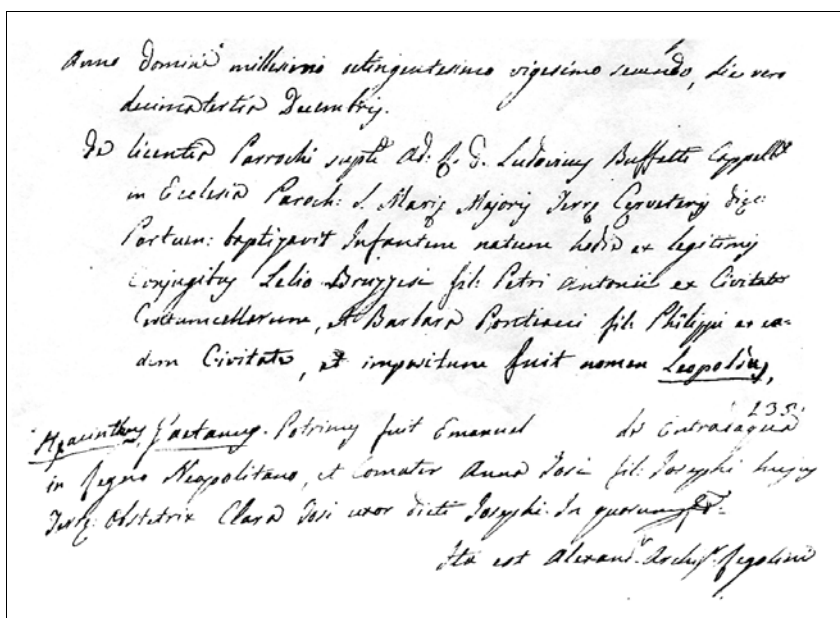 Anno Domini millesimo octingentesimo vigesimo secundo, die vero
decimatertia Decembris.
De licentia Parrochi supti Ad: R. D. Ludovicus Buffetti Cappells
in Ecclesia Paroch: S. Marię Majoris Terrę Cęrveteris Dięc:
Portuen: baptizavit Infantem natum hodie ex legitimis
Conjugibus Lelio Bruzzesi fil: Petri Antonii ex Civitate
Centumcellarum, et Barbara Pontiaci fil: Philippi ex ea-
dem Civitate, et impositum fuit nomen Leopoldus,
235.
Hyacinthus, Gaetanus. Patrinus fuit Emanuel de Entradaqua
in Regno Neapolitano, et Comater Anna Tosi fil: Josephi hujus
Terrę. Obstetrix Clara Tosi uxor dicti Josephi. In quorum
Ita est Alexanr. Archipr. Regolini